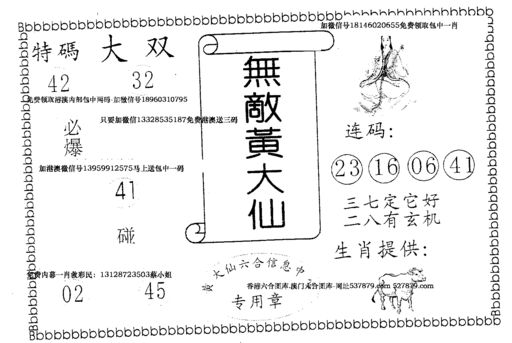 加微信号18146020655免费领取包中一肖
特碼 大双
42 32
免费领取港澳内部包中网码 加微信号18960310795
只要加微信13328535187免费港澳送三码
必爆
加港澳微信号13959912575马上送包中一码
41
碰
免费内幕一肖救彩民：13128723503蔡小姐
02 45
無敵黃大仙
黄大仙六合信息中
香港六合图库.澳门六合图库-网址537879.com 527879.com
专用章
连码：
23 16 06 41
三七定它好
二八有玄机
生肖提供：